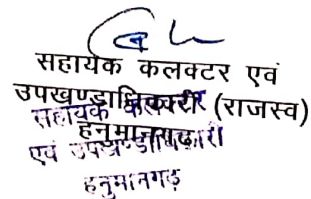 सहायक कलक्टर एवं
उपखण्डाधिकारी (राजस्व)
हनुमानगढ़
सहायक कलक्टर
एवं उपखण्डाधिकारी
हनुमानगढ़